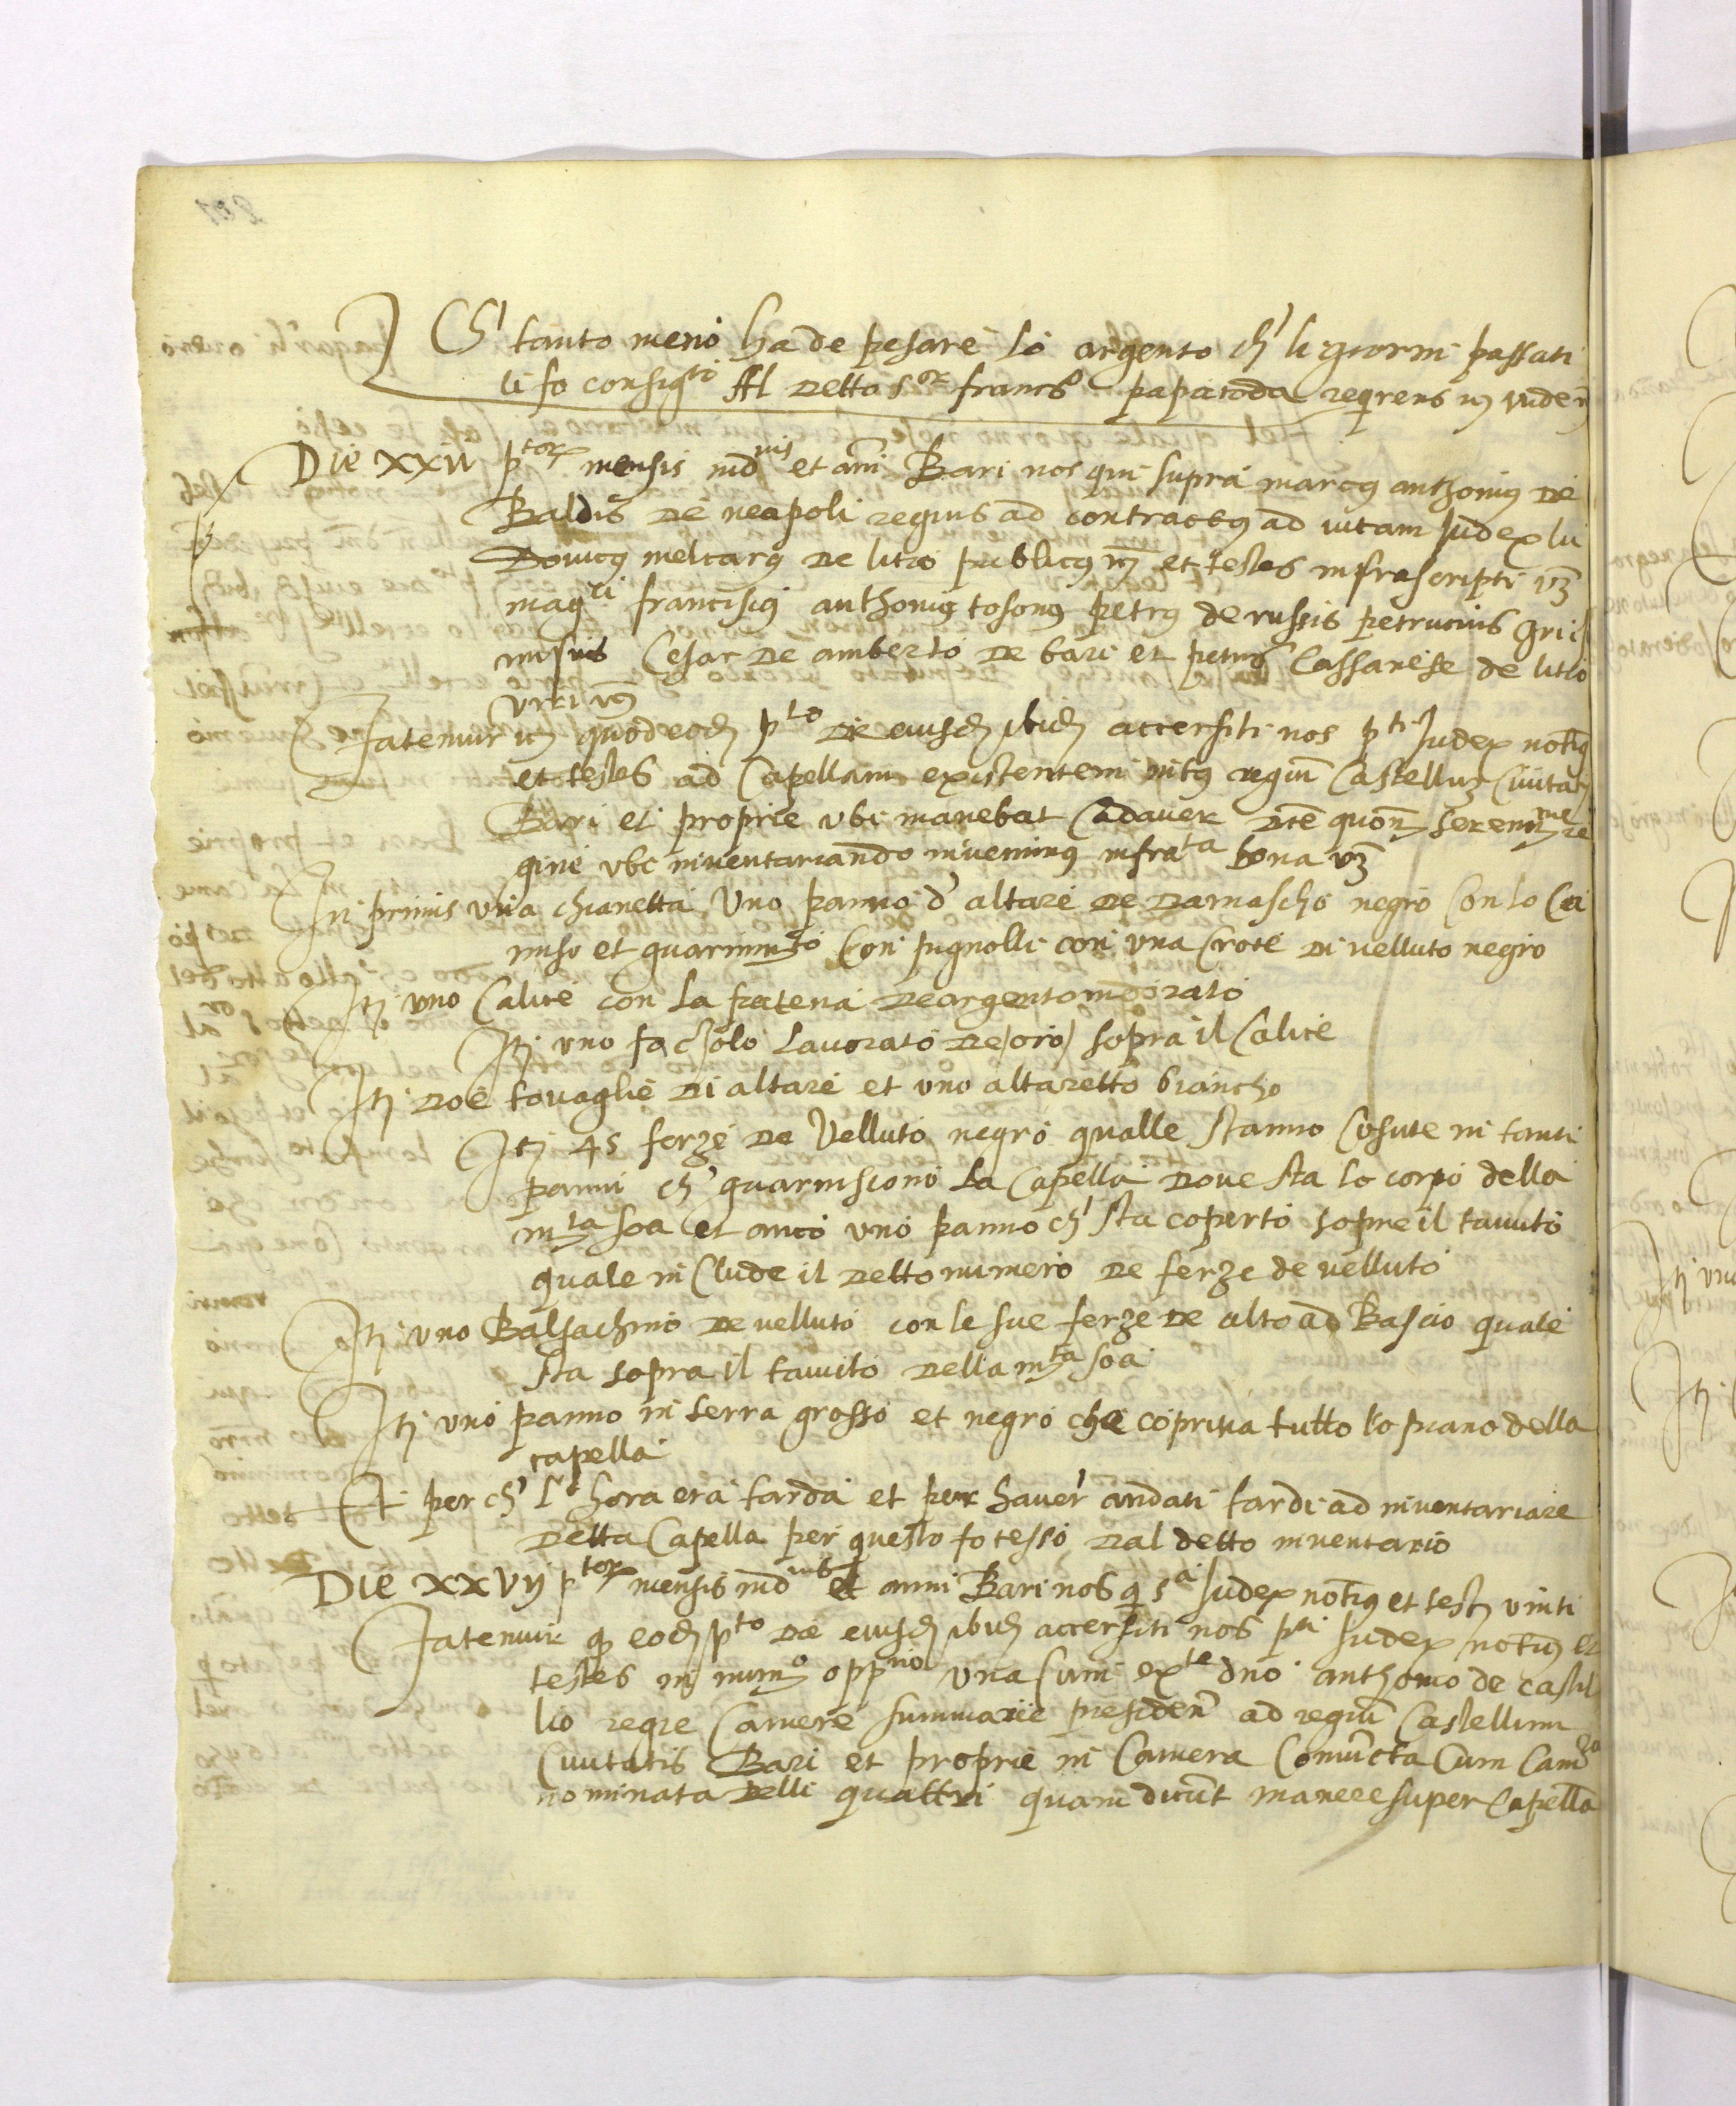 Ch' tanto meno ha de pesare lo argento ch' li giorni passati
li fo consigto Al detto sor franco papacoda reqrens
Die XXVI ptor mensis indnis et anni Bari nos qui supra marcus anthonius de
Baldis de neapoli regius ad contractus ad vitam Judex lu
Dovicus de litio publicus et testes infrascripti vz
magci franciscus anthonius tosonus petrus de russis petrucius Gril
Cesar de amberto de bari et petrus Cassanese de litio
Fatemur quod eodem pto die eiusdem ibidem accersiti nos pti Judex notus
et testes ad Capellam existentem intus regiū Castellum Civitatis
Bari et proprie ubi manebat Cadaver dte quondam serenme re
gine ubi inventariando invenimus infrata bona vz
In primis una chianetta Uno panno d' altare de damascho negro Con lo Ca
miso et guarnimto con pugnolli con una Croce di velluto negro
Itz uno Calice con la patena de argento inorato
Itz uno facsolo lavorato de oro sopra il Calice
Itz doe tovaglie di altare et uno altaretto biancho
Itz 45 ferze de Velluto negro qualle stanno Cosute in tanti
panni ch' guarniscono la Capella dove sta lo corpo della
mta soa et anco uno panno ch' sta coperto sopre il tavuto
quale in Clude il detto numero de ferze de velluto
Itz uno Balsachino de velluto con le sue ferze de alto ad Bascio quale
sta sopra il tavuto della mta soa
Itz uno panno in terra grosso et negro che copriva tutto lo piano della
capella
Et per ch' l' hora era tarda et per haver' andati tardi ad inventariare
detta Capella per questo fo cesso dal detto inventario
Die XXVIJ ptor mensis indnis et anni Bari nos q sa Judex notus et testz
Fatemur q eodem pto die eiusdem ibidem accersiti nos pti Judex notus et
testes in numo oppno una cum exte dno anthonio de castil
lio regie Camere summarie presiden' ad regiū Castellum
Civitatis Bari et proprie in Camera Coniuncta Cum Camra
nominata delli quattri quam dicūt manere super Capella